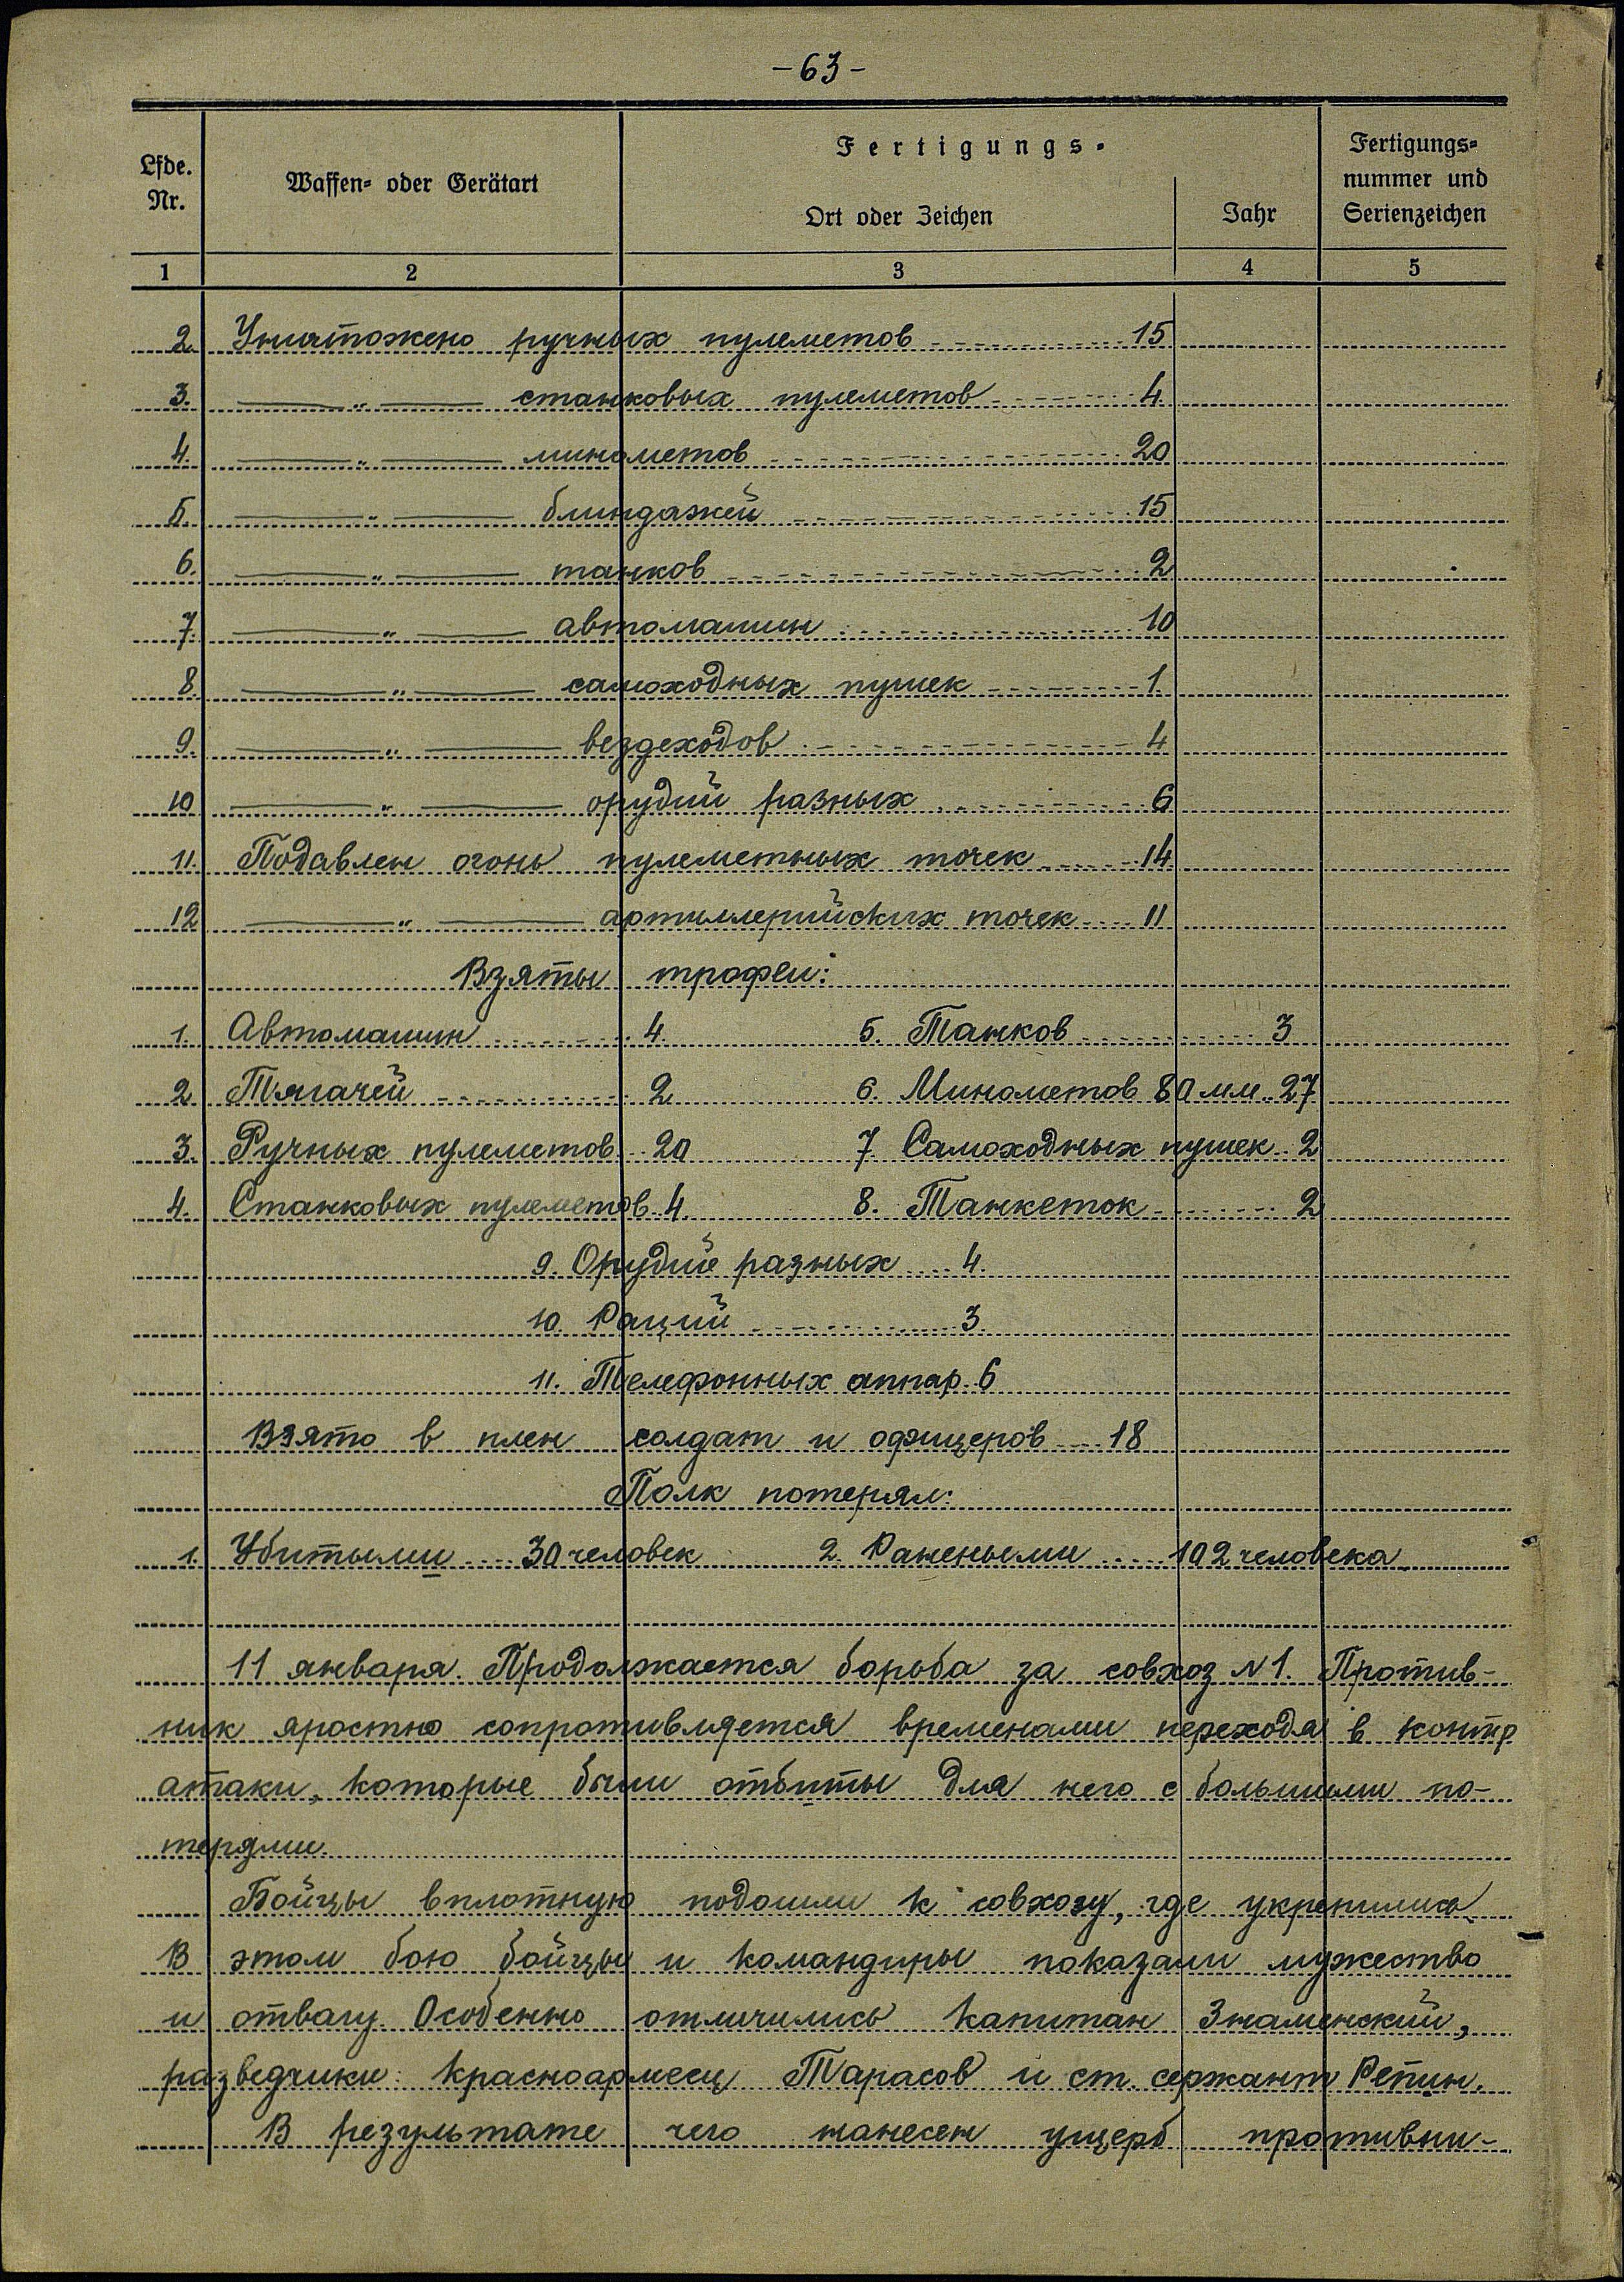 -63-
Lfde. Nr.
Waffen- oder Gerätart
Fertigungs-
Ort oder Zeichen
Jahr
Fertigungs-
nummer und
Serienzeichen
1 2 3 4 5
2. Уничтожено ручных пулеметов 15
3. —„— станковых пулеметов 4
4. —„— минометов 20
5. —„— блиндажей 15
6. —„— танков 2
7. —„— автомашин 10
8. —„— самоходных пушек 1.
9. —„— вездеходов 4
10 —„— орудий разных 6
11. Подавлен огонь пулеметных точек 14
12 —„— артиллерийских точек 11
Взяты трофеи:
1. Автомашин 4. 5. Танков 3
2 Тягачей 2 6. Минометов 80 мм. 27
3. Ручных пулеметов 20 7. Самоходных пушек 2
4. Станковых пулеметов 4. 8. Танкеток 2
9. Орудие разных 4.
10. Раций 3.
11. Телефонных аппар. 6
Взято в плен солдат и офицеров 18
Полк потерял:
1. Убитыми 30 человек 2. Раненыеми 102 человека
11 января. Продолжается борьба за совхоз N1. Против-
ник яростно сопротивляется временами переходя в контр
атаки, которые были отбиты для него с большими по-
терями.
Бойцы вплотную подошли к совхозу, где укрепились.
В этом бою бойцы и командиры показали мужество
и отвагу. Особенно отличились капитан Знаменский,
разведчики: красноармеец Тарасов и ст. сержант Репин.
В результате чего нанесен ущерб противни-